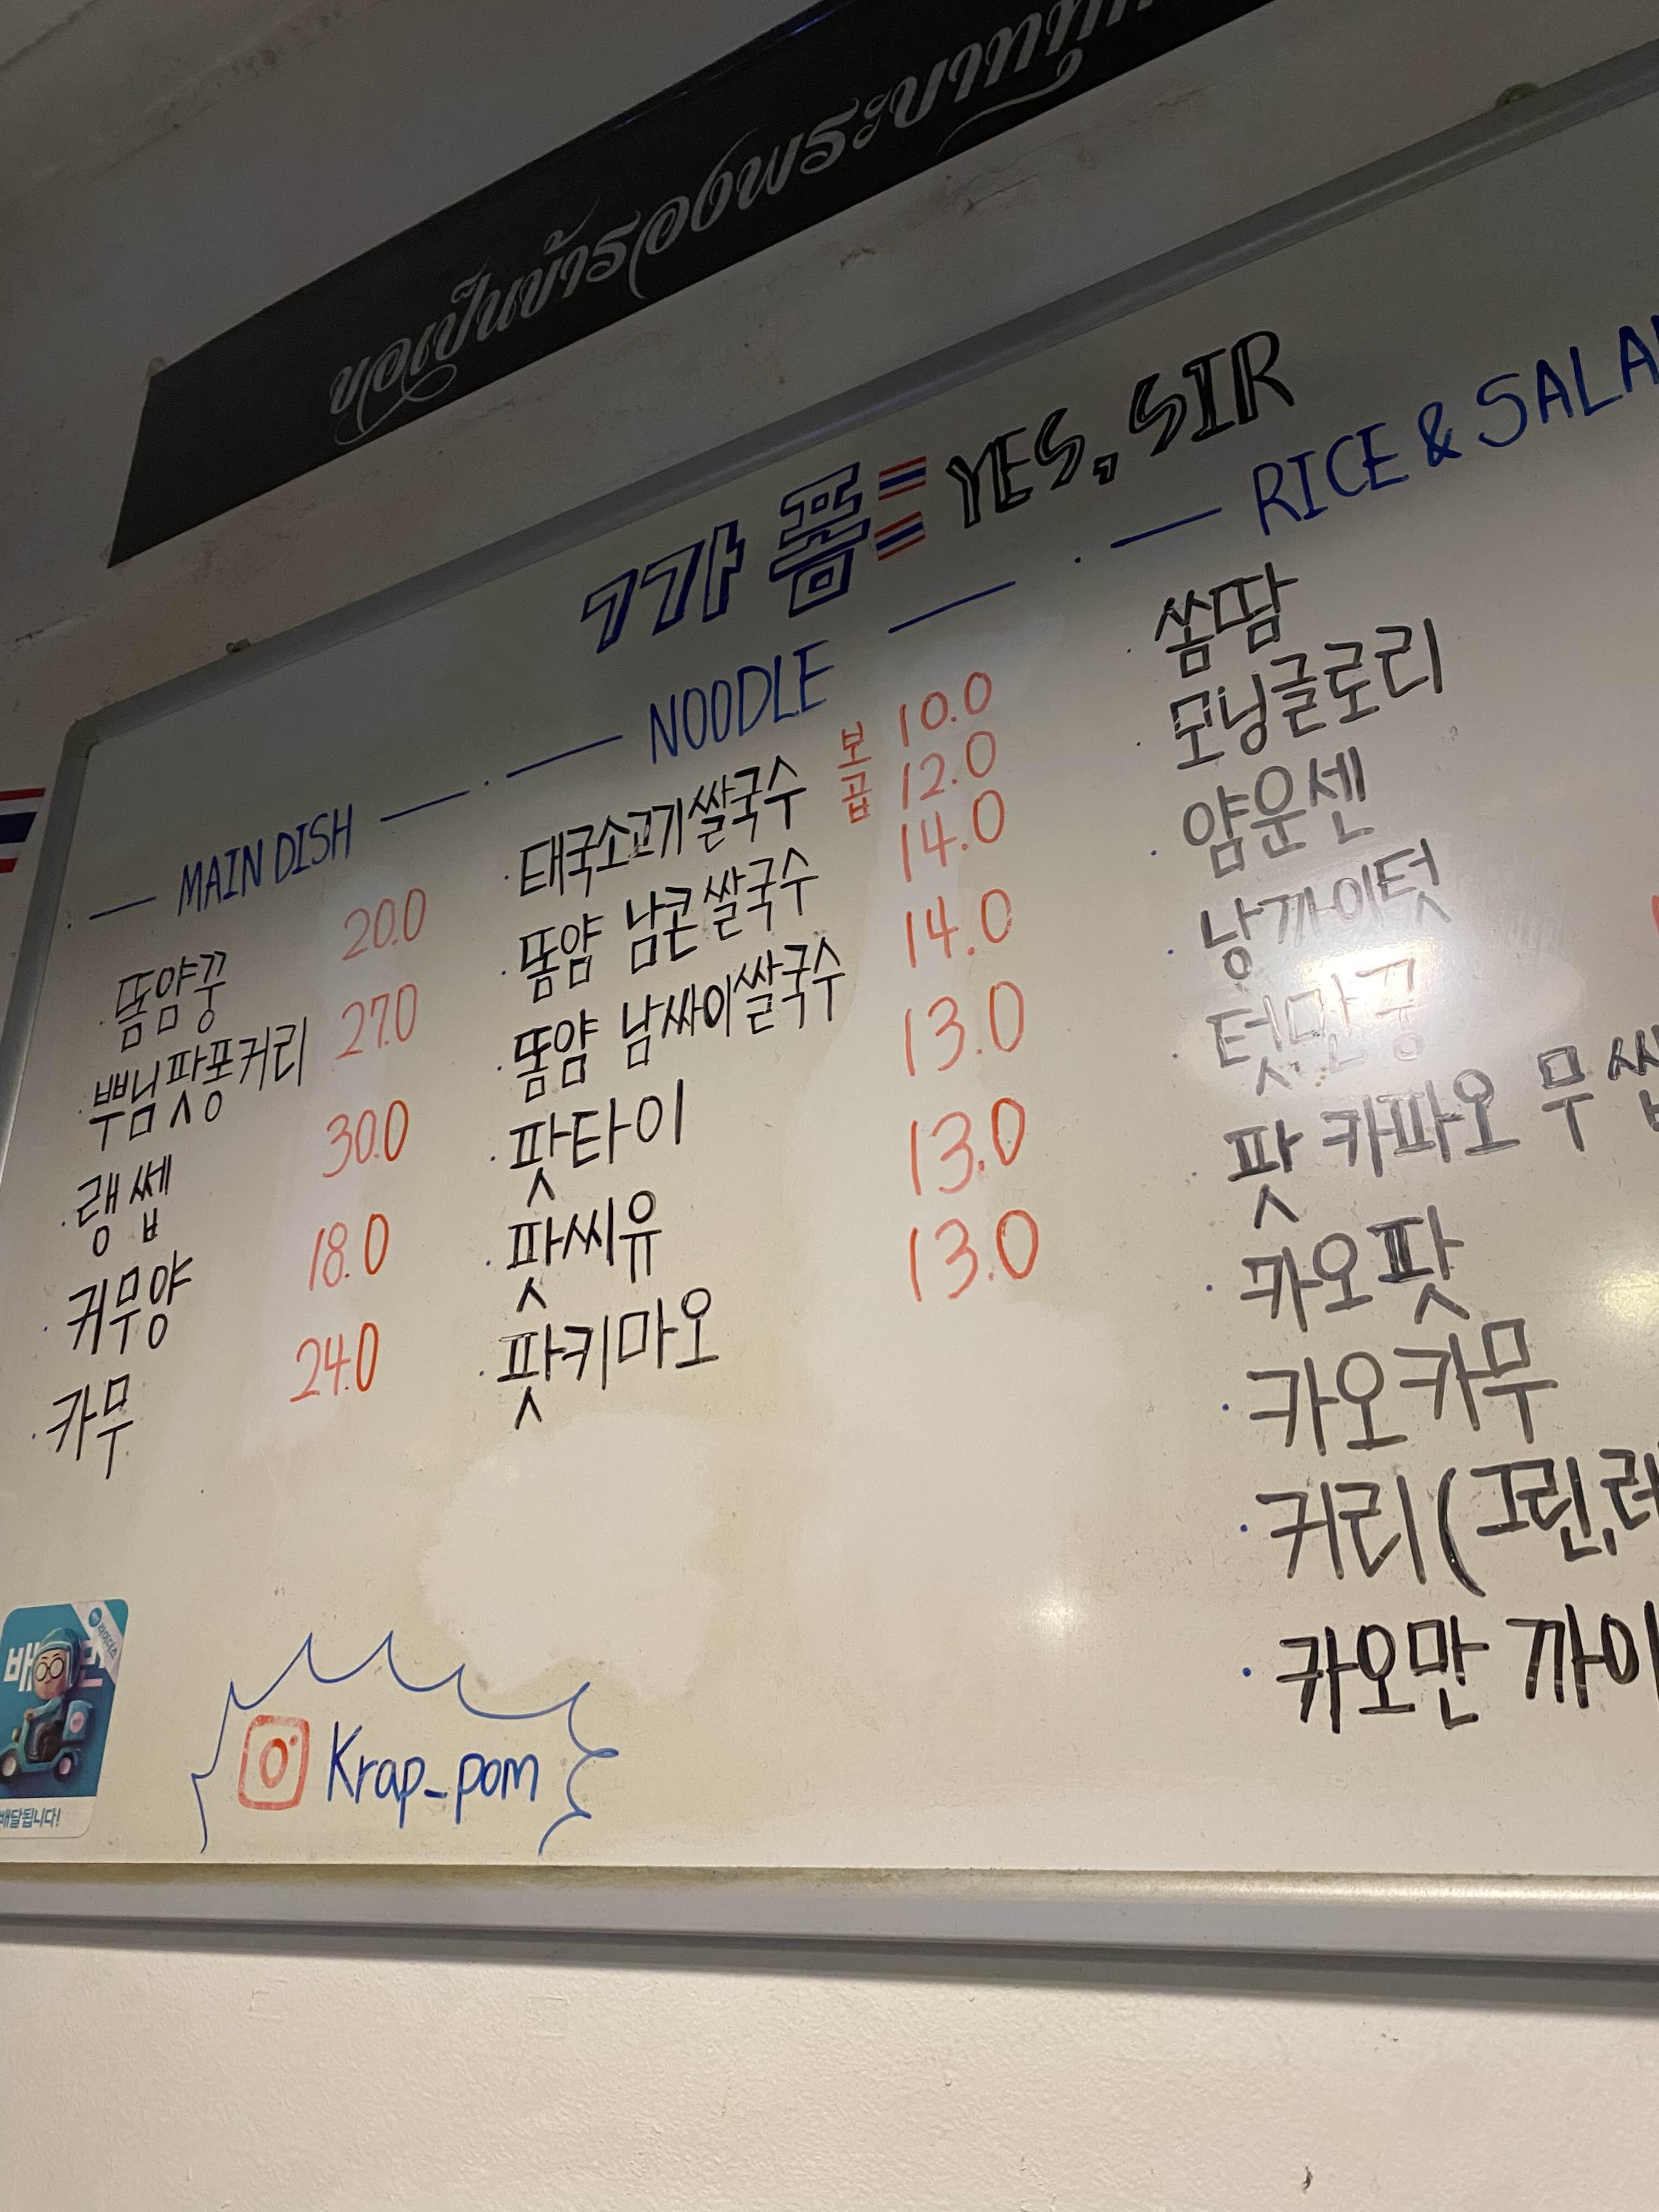 ขอเป็นข้ารองพระบาททุก
까폼 = YES, SIR
MAIN DISH
똠얌꿍 20.0
뿌님팟퐁커리 27.0
랭쎕 30.0
커무양 18.0
카무 24.0
NOODLE
태국소고기쌀국수 보 10.0
곱 12.0
똠얌 남콘쌀국수 14.0
똠얌 남싸이쌀국수 14.0
팟타이 13.0
팟씨유 13.0
팟키마오 13.0
RICE & SALA
쏨땀
모닝글로리
얌운센
낭까이텃
텃만꿍
팟 카파오 무쌉
카오팟
카오카무
커리(그린,레
카오만 까이
Krap_pom
배달됩니다!